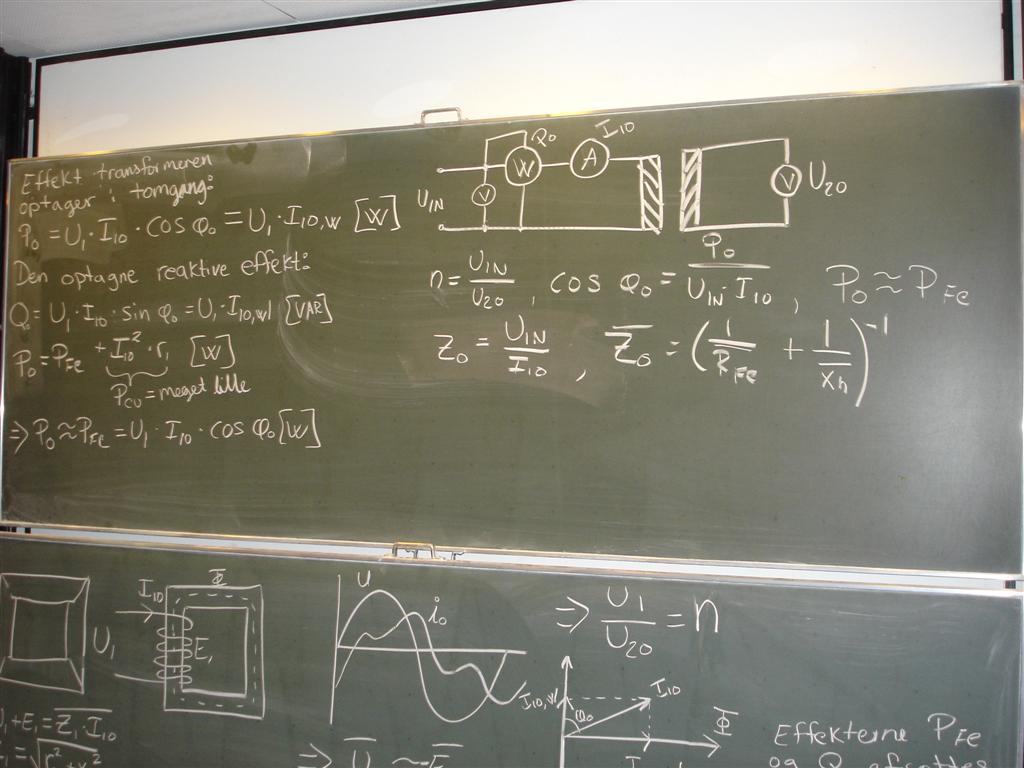 Effekt transformeren
optager i tomgang:
P₀ = U₁ · I₁₀ · cos φ₀ = U₁ · I₁₀,w [W]
Den optagne reaktive effekt:
Q₀ = U₁ · I₁₀ · sin φ₀ = U₁ · I₁₀,wl [VAR]
P₀ = P_Fe + I₁₀² · r₁ [W]
P_CU = meget lille
⇒ P₀ ≈ P_Fe = U₁ · I₁₀ · cos φ₀ [W]
P₀ I₁₀
W A
U_IN V V U₂₀
n = U_IN / U₂₀ , cos φ₀ = P₀ / (U_IN · I₁₀) , P₀ ≈ P_Fe
Z₀ = U_IN / I₁₀ , Z̅₀ = (1/R_Fe + 1/X_h)⁻¹
I₁₀ Φ
U₁ E₁
u i₀
⇒ U₁ / U₂₀ = n
I₁₀,w φ₀ I₁₀
Φ
U₁ + E₁ = Z₁ I₁₀
Effekterne P_Fe
og Q afsættes